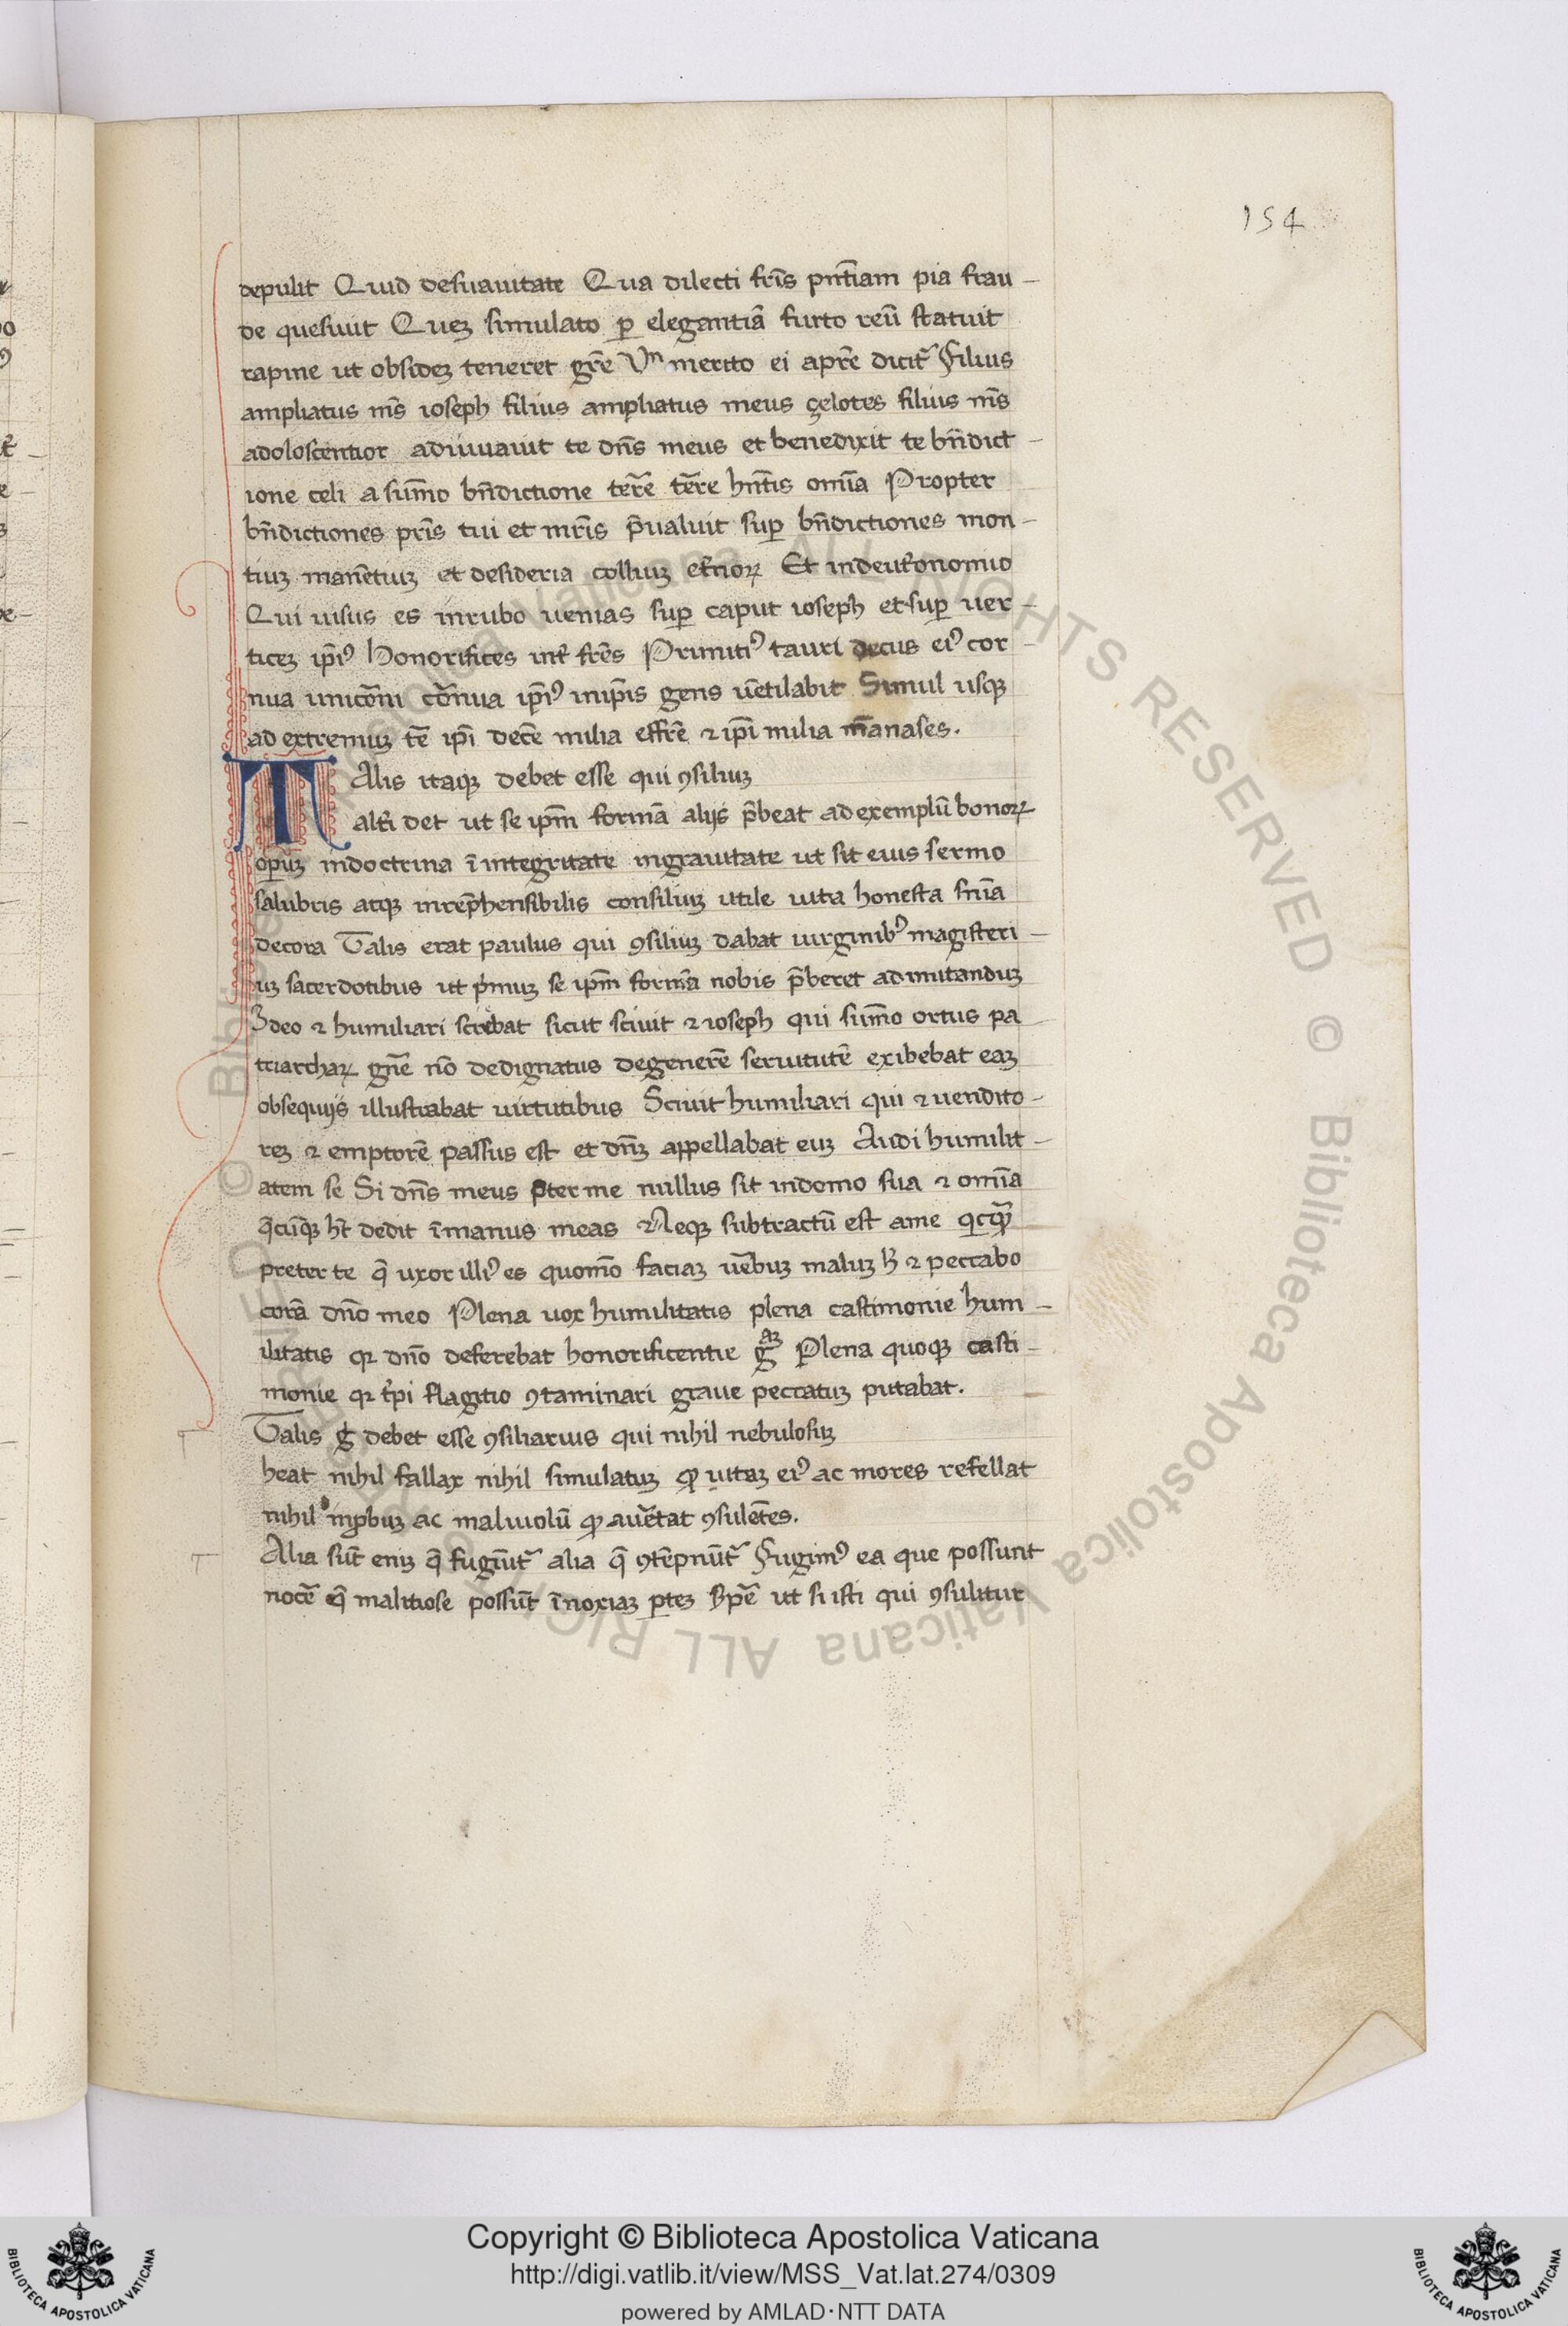 154
depulit Quid desuauitate Qua dilecti fr̄is pn̄tiam pia frau-
de quesiuit Queʒ simulato ꝑ elegantiā furto reū statuit
rapine ut obsideʒ teneret gr̄e Vn̄ merito ei apr̄e dicit᷑ Filius
ampliatus m̄s ioseph filius ampliatus meus çelotes filius m̄s
adoloscentior adiuuauit te dn̄s meus et benedixit te bn̄dict-
ione celi a sum̄o bn̄dictione ter̄e ter̄e hn̄tis om̄ia Propter
bn̄dictiones pr̄is tui et mr̄is p̄ualuit suꝑ bn̄dictiones mon-
tiuʒ manētiuʒ et desideria colliuʒ et̓noꝝ Et indeut̓onomio
Qui uisus es inrubo uenias suꝑ caput ioseph et suꝑ uer-
ticeʒ ip̄iꝰ Honorifices int̓ fr̄es Primitiꝰ tauri decus eiꝰ cor-
nua unicōni cōnua ip̄iꝰ inip̄is gens uētilabit Simul usqꝫ
ad extremuʒ tē ip̄i decē milia effrē ⁊ ip̄i milia m̄anases.
TAlis itaqꝫ debet esse qui ꝯsiliuʒ
alt̓i det ut se ip̄m formā alijs p̄beat ad exemplū bonoꝝ
oꝑuʒ indoctrina ī integritate ingrauitate ut sit eius sermo
salubris atqꝫ inrep̄hensibilis consiliuʒ utile uita honesta sn̄ia
decora Talis erat paulus qui ꝯsiliuʒ dabat uirginibꝰ magisteri-
uʒ sacerdotibus ut p̓muʒ se ip̄m formā nobis p̄beret ad imitanduʒ
Ideo ⁊ humiliari sciebat sicut sciuit ⁊ ioseph qui sum̄o ortus pa
triarchaꝝ gn̄e nō dedignatus degenerē seruitutē exibebat eaʒ
obsequijs illustrabat uirtutibus Sciuit humiliari qui ⁊ uendito-
reʒ ⁊ emptorē passus est et dn̄ʒ appellabat euʒ Audi humilit-
atem se Si dn̄s meus ꝓter me nullus sit indomo sua ⁊ om̄ia
q̄cūqꝫ ht̄ dedit ī manus meas Neqꝫ subtractū est ame qͥcqᷓ
preter te q̄ uxor illiꝰ es quom̄o faciaʒ uēbuʒ maluʒ h̓ ⁊ peccabo
corā dn̄o meo Plena uox humilitatis plena castimonie hum-
ilitatis qꝛ dn̄o deferebat honorificentie g̃aʒ Plena quoqꝫ casti-
monie qꝛ t̓pi flagitio ꝯtaminari graue peccatuʒ putabat.
Talis g̊ debet esse ꝯsiliarius qui nihil nebulosuʒ
heat nihil fallax nihil simulatuʒ qͦ uitaʒ eiꝰ ac mores refellat
nihil inꝓbuʒ ac maliuolū qͦ au̓etat ꝯsulētes.
Alia sūt eniʒ q̄ fugiūt᷑ alia q̄ ꝯtēpnūt᷑ Fugimꝰ ea que possunt
nocē q̄ malitiose possūt ī noxiaʒ ꝑteʒ s̓pē ut si isti qui ꝯsulitur
Copyright © Biblioteca Apostolica Vaticana
http://digi.vatlib.it/view/MSS_Vat.lat.274/0309
powered by AMLAD·NTT DATA
BIBLIOTECA APOSTOLICA VATICANA
BIBLIOTECA APOSTOLICA VATICANA
© Biblioteca Apostolica Vaticana ALL RIGHTS RESERVED © Biblioteca Apostolica Vaticana ALL RIGHTS RESERVED